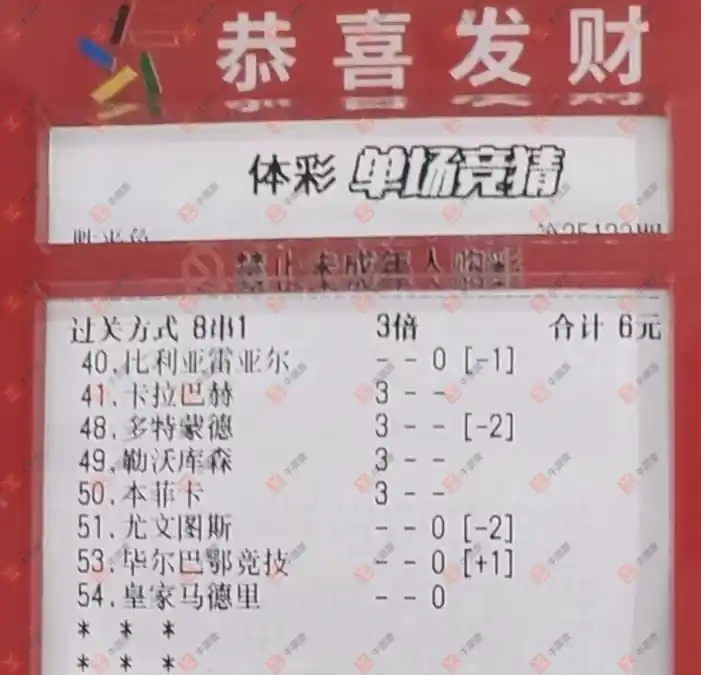 恭喜发财
体彩 单场竞猜
胜平负
禁止未成年人购彩
过关方式 8串1 3倍 合计 6元
40.比利亚雷亚尔 - - 0 [-1]
41.卡拉巴赫 3 - -
48.多特蒙德 3 - - [-2]
49.勒沃库森 3 - -
50.本菲卡 3 - -
51.尤文图斯 - - 0 [-2]
53.毕尔巴鄂竞技 - - 0 [+1]
54.皇家马德里 - - 0
* * *
* * *